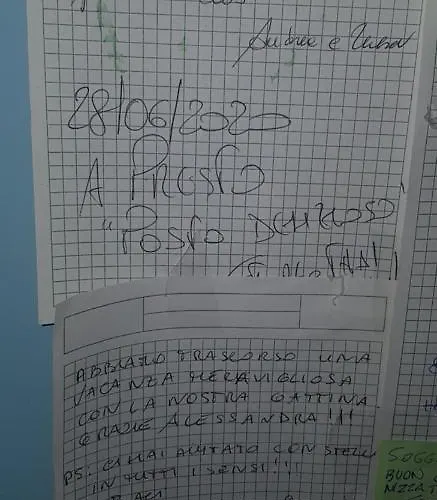 Andrea e
28/06/2020
A PRESTO
"POSTO DELIZIOSO
ABBIAMO TRASCORSO UNA
VACANZA MERAVIGLIOSA
CON LA NOSTRA GATTINA.
GRAZIE ALESSANDRA!!!
PS. CI HAI AIUTATO CON STELLA
IN TUTTI I SENSI!!!
SOGG
BUON